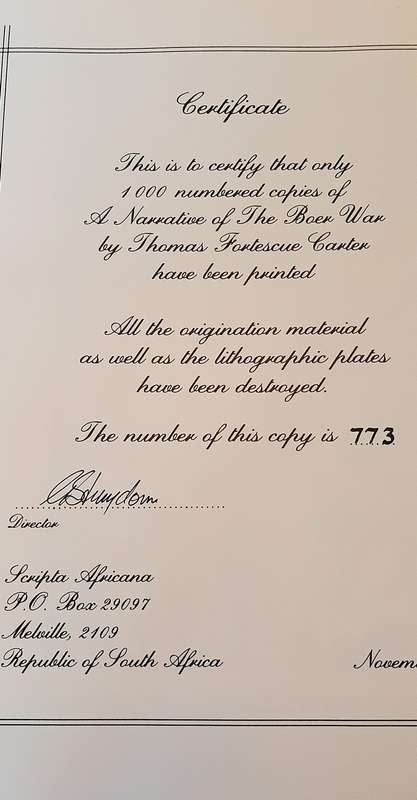 Certificate
This is to certify that only
1000 numbered copies of
A Narrative of The Boer War
by Thomas Fortescue Carter
have been printed
All the origination material
as well as the lithographic plates
have been destroyed.
The number of this copy is 773
Director
Scripta Africana
P.O. Box 29097
Melville, 2109
Republic of South Africa
Novem